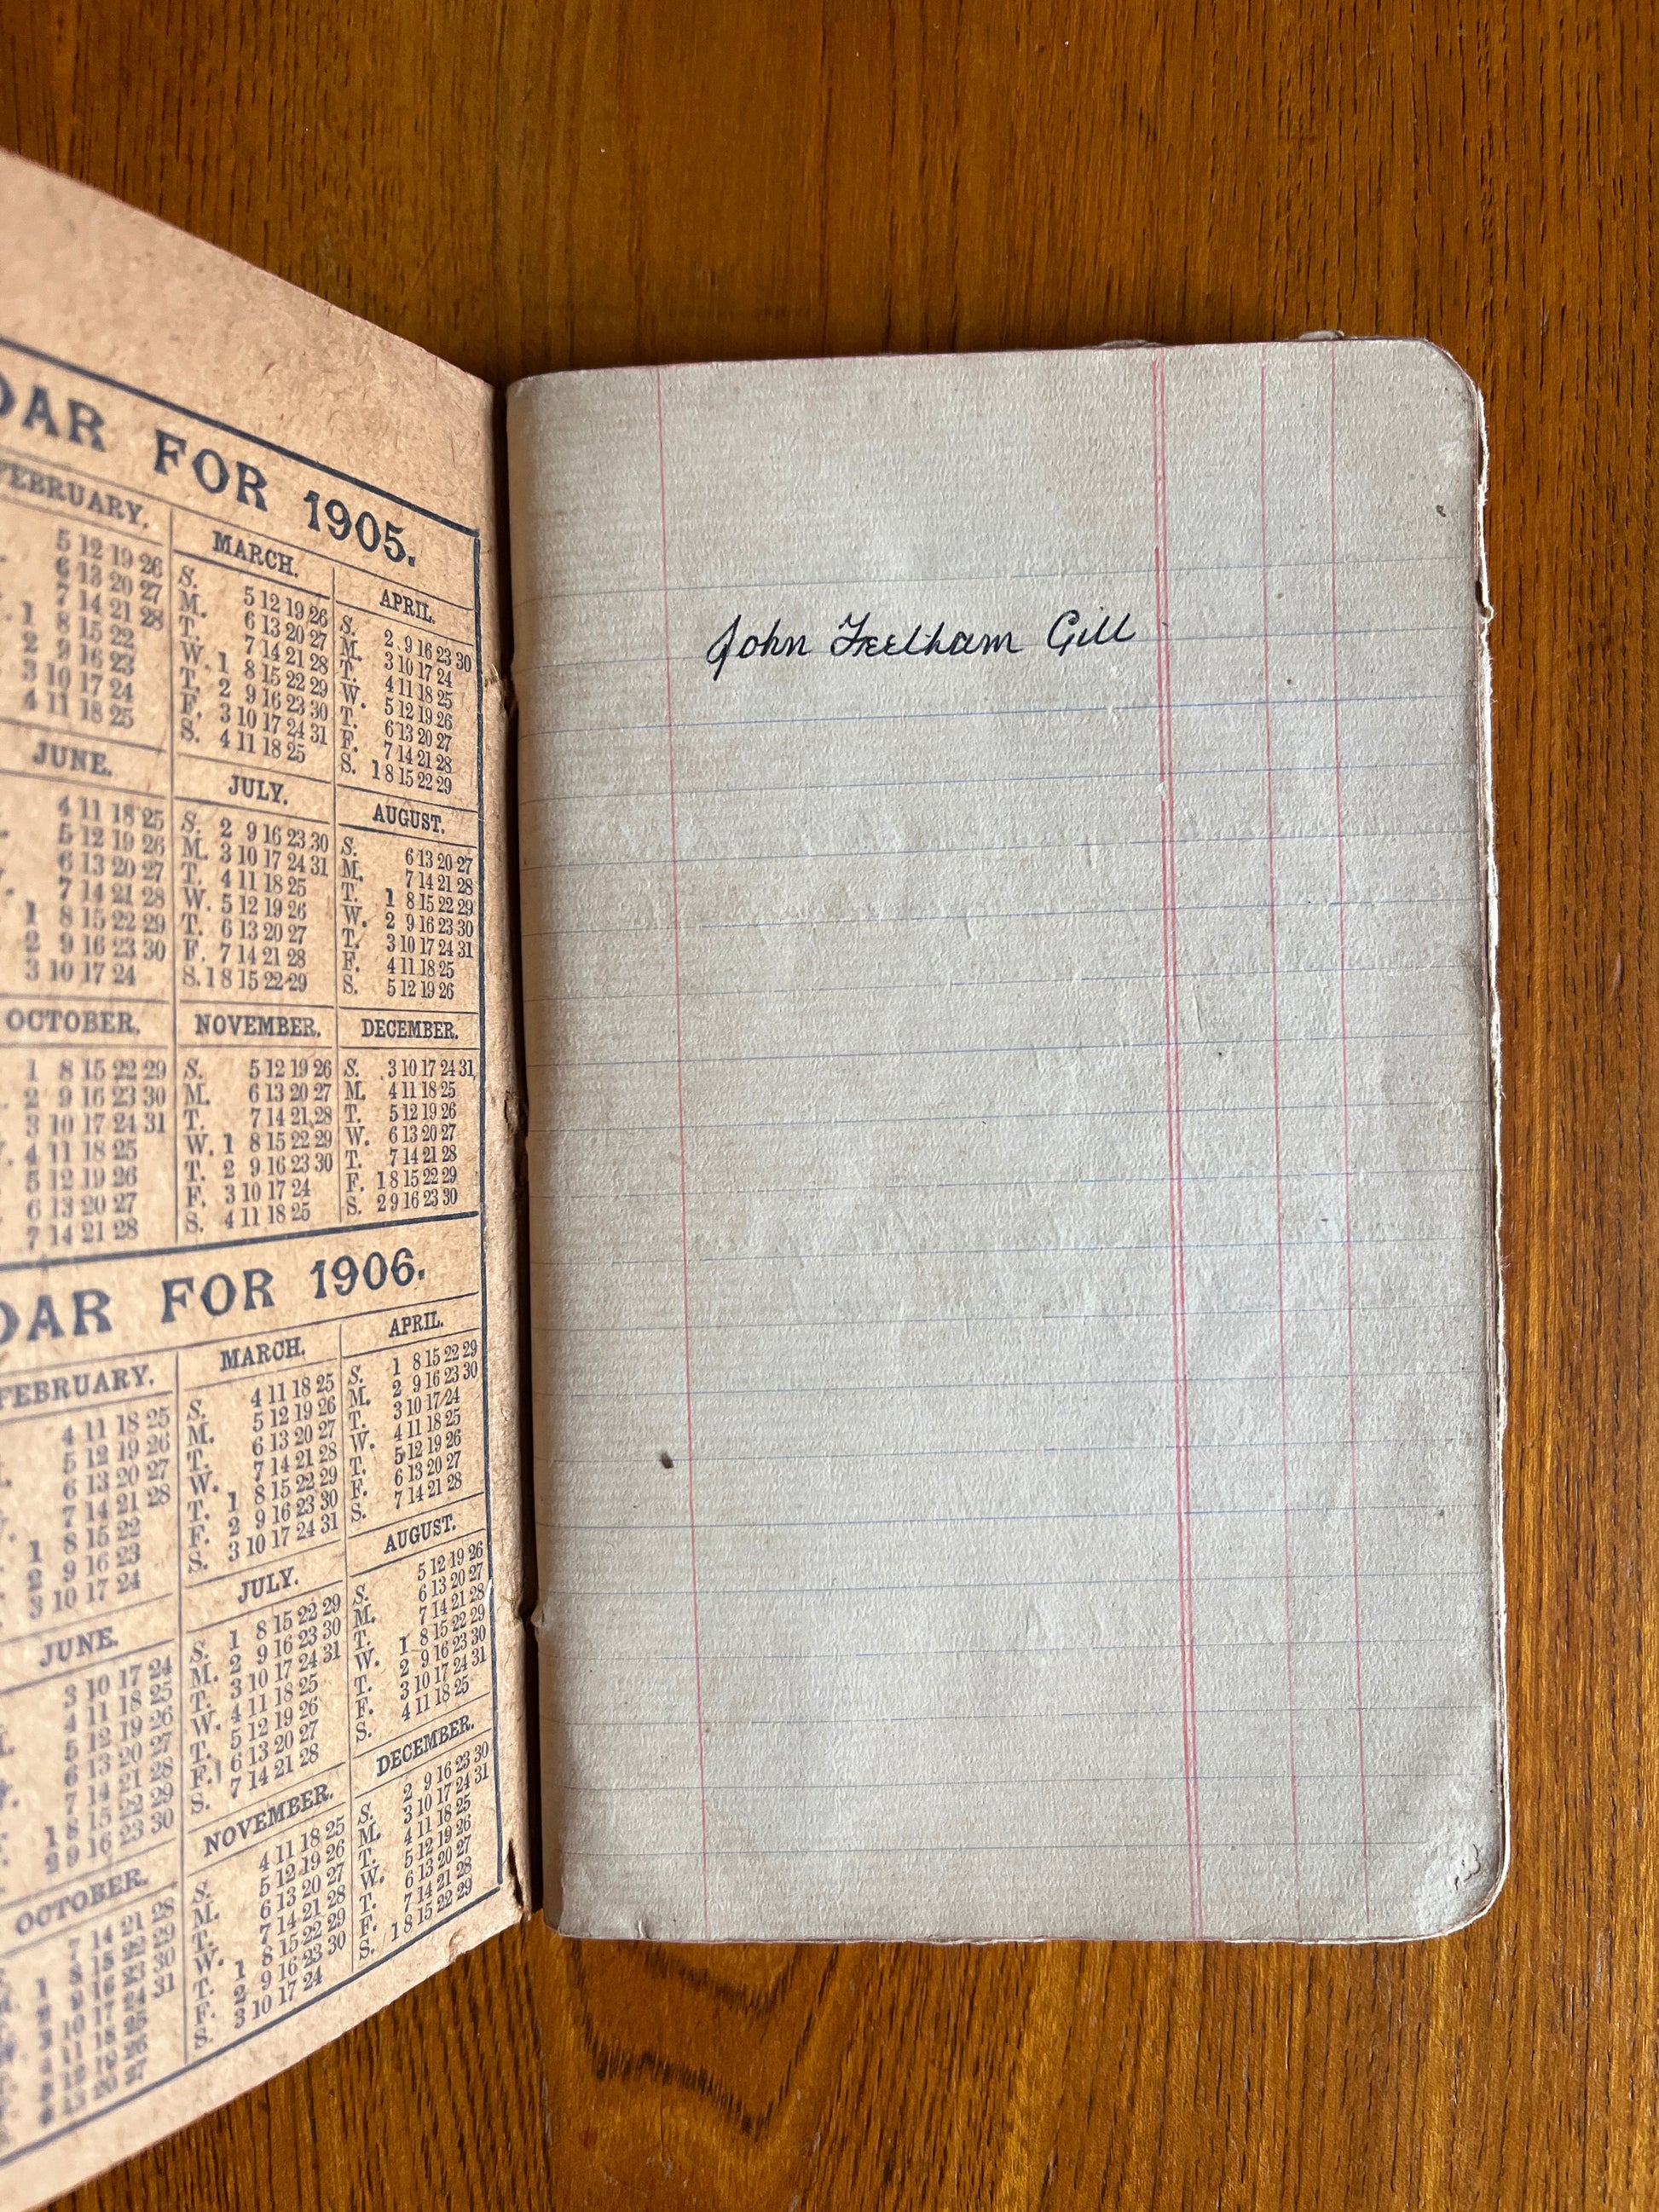 DAR FOR 1905.
FEBRUARY.
5 12 19 26
6 13 20 27
7 14 21 28
1 8 15 22
2 9 16 23
3 10 17 24
4 11 18 25
MARCH.
S. 5 12 19 26
M. 6 13 20 27
T. 7 14 21 28
W. 1 8 15 22 29
T. 2 9 16 23 30
F. 3 10 17 24 31
S. 4 11 18 25
APRIL.
S. 2 9 16 23 30
M. 3 10 17 24
T. 4 11 18 25
W. 5 12 19 26
T. 6 13 20 27
F. 7 14 21 28
S. 1 8 15 22 29
JUNE.
4 11 18 25
5 12 19 26
6 13 20 27
7 14 21 28
1 8 15 22 29
2 9 16 23 30
3 10 17 24
JULY.
S. 2 9 16 23 30
M. 3 10 17 24 31
T. 4 11 18 25
W. 5 12 19 26
T. 6 13 20 27
F. 7 14 21 28
S. 1 8 15 22 29
AUGUST.
S. 6 13 20 27
M. 7 14 21 28
T. 1 8 15 22 29
W. 2 9 16 23 30
T. 3 10 17 24 31
F. 4 11 18 25
S. 5 12 19 26
OCTOBER.
1 8 15 22 29
2 9 16 23 30
3 10 17 24 31
4 11 18 25
5 12 19 26
6 13 20 27
7 14 21 28
NOVEMBER.
S. 5 12 19 26
M. 6 13 20 27
T. 7 14 21 28
W. 1 8 15 22 29
T. 2 9 16 23 30
F. 3 10 17 24
S. 4 11 18 25
DECEMBER.
S. 3 10 17 24 31
M. 4 11 18 25
T. 5 12 19 26
W. 6 13 20 27
T. 7 14 21 28
F. 1 8 15 22 29
S. 2 9 16 23 30
DAR FOR 1906.
FEBRUARY.
4 11 18 25
5 12 19 26
6 13 20 27
7 14 21 28
1 8 15 22
2 9 16 23
3 10 17 24
MARCH.
S. 4 11 18 25
M. 5 12 19 26
T. 6 13 20 27
W. 7 14 21 28
T. 1 8 15 22 29
F. 2 9 16 23 30
S. 3 10 17 24 31
APRIL.
S. 1 8 15 22 29
M. 2 9 16 23 30
T. 3 10 17 24
W. 4 11 18 25
T. 5 12 19 26
F. 6 13 20 27
S. 7 14 21 28
JUNE.
3 10 17 24
4 11 18 25
5 12 19 26
6 13 20 27
7 14 21 28
1 8 15 22 29
2 9 16 23 30
JULY.
S. 1 8 15 22 29
M. 2 9 16 23 30
T. 3 10 17 24 31
W. 4 11 18 25
T. 5 12 19 26
F. 6 13 20 27
S. 7 14 21 28
AUGUST.
S. 5 12 19 26
M. 6 13 20 27
T. 7 14 21 28
W. 1 8 15 22 29
T. 2 9 16 23 30
F. 3 10 17 24 31
S. 4 11 18 25
OCTOBER.
7 14 21 28
1 8 15 22 29
2 9 16 23 30
3 10 17 24 31
4 11 18 25
5 12 19 26
6 13 20 27
NOVEMBER.
S. 4 11 18 25
M. 5 12 19 26
T. 6 13 20 27
W. 7 14 21 28
T. 1 8 15 22 29
F. 2 9 16 23 30
S. 3 10 17 24
DECEMBER.
S. 2 9 16 23 30
M. 3 10 17 24 31
T. 4 11 18 25
W. 5 12 19 26
T. 6 13 20 27
F. 7 14 21 28
S. 1 8 15 22 29
John Feelham Gill